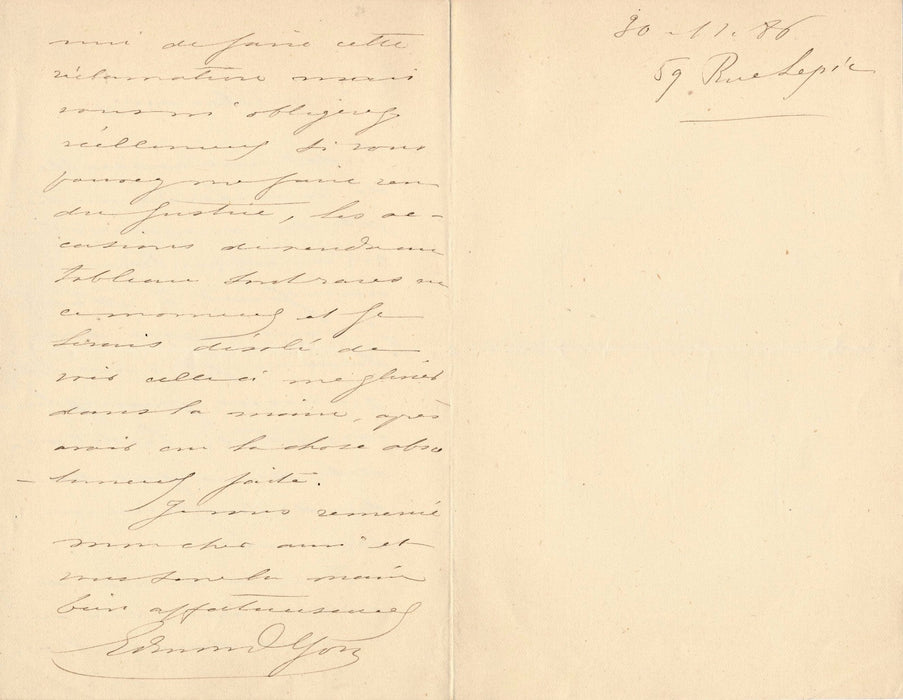 moi de faire cette
réclamation mais
vous m'obligerez
réellement si vous
pouvez me faire ren-
dre justice, les oc-
casions de vendre un
tableau sont rares en
ce moment et je
serais désolé de
voir celle ci me glisser
dans la main, après
avoir cru la chose abso
lument faite.
Je vous remercie
mon cher ami et
vous serre la main
bien affectueusement
Edmond Yon
30-11.86
59 Rue Lepic